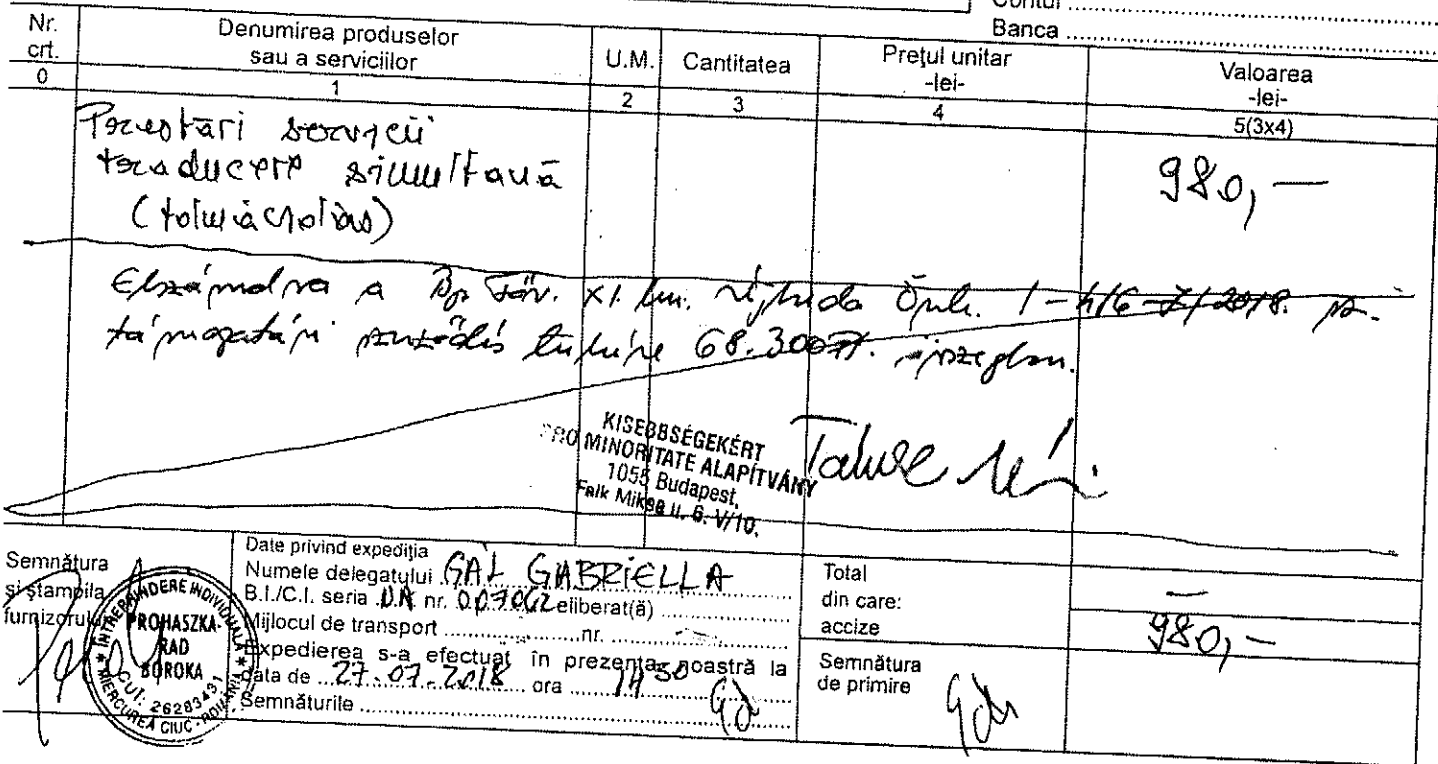 Contul
Banca
Nr. crt.
Denumirea produselor sau a serviciilor
U.M.
Cantitatea
Prețul unitar -lei-
Valoarea -lei-
0 1 2 3 4 5(3x4)
Prestări servicii
traducere simultană
(tolmácsolás)
980,—
Elszámolva a Bp Főv. XI. ker. Újbuda Önk. 1-416-7/2018. sz.
támogatási szerződés terhére 68.300 Ft. összegben.
KISEBBSÉGEKÉRT
PRO MINORITATE ALAPÍTVÁNY
1055 Budapest,
Falk Miksa u. 6. V/10.
Semnătura
și ștampila
furnizorului
ÎNTREPRINDERE INDIVIDUALĂ
PROHASZKA-
RAD
BOROKA
CUI: 26283431
MIERCUREA CIUC - ROMÂNIA
Date privind expediția
Numele delegatului GÁL GABRIELLA
B.I./C.I. seria nr. 007062 eliberat(ă)
Mijlocul de transport nr.
Expedierea s-a efectuat în prezența noastră la
data de 27.07.2018 ora 14 30
Semnăturile
Total —
din care:
accize
980,—
Semnătura
de primire